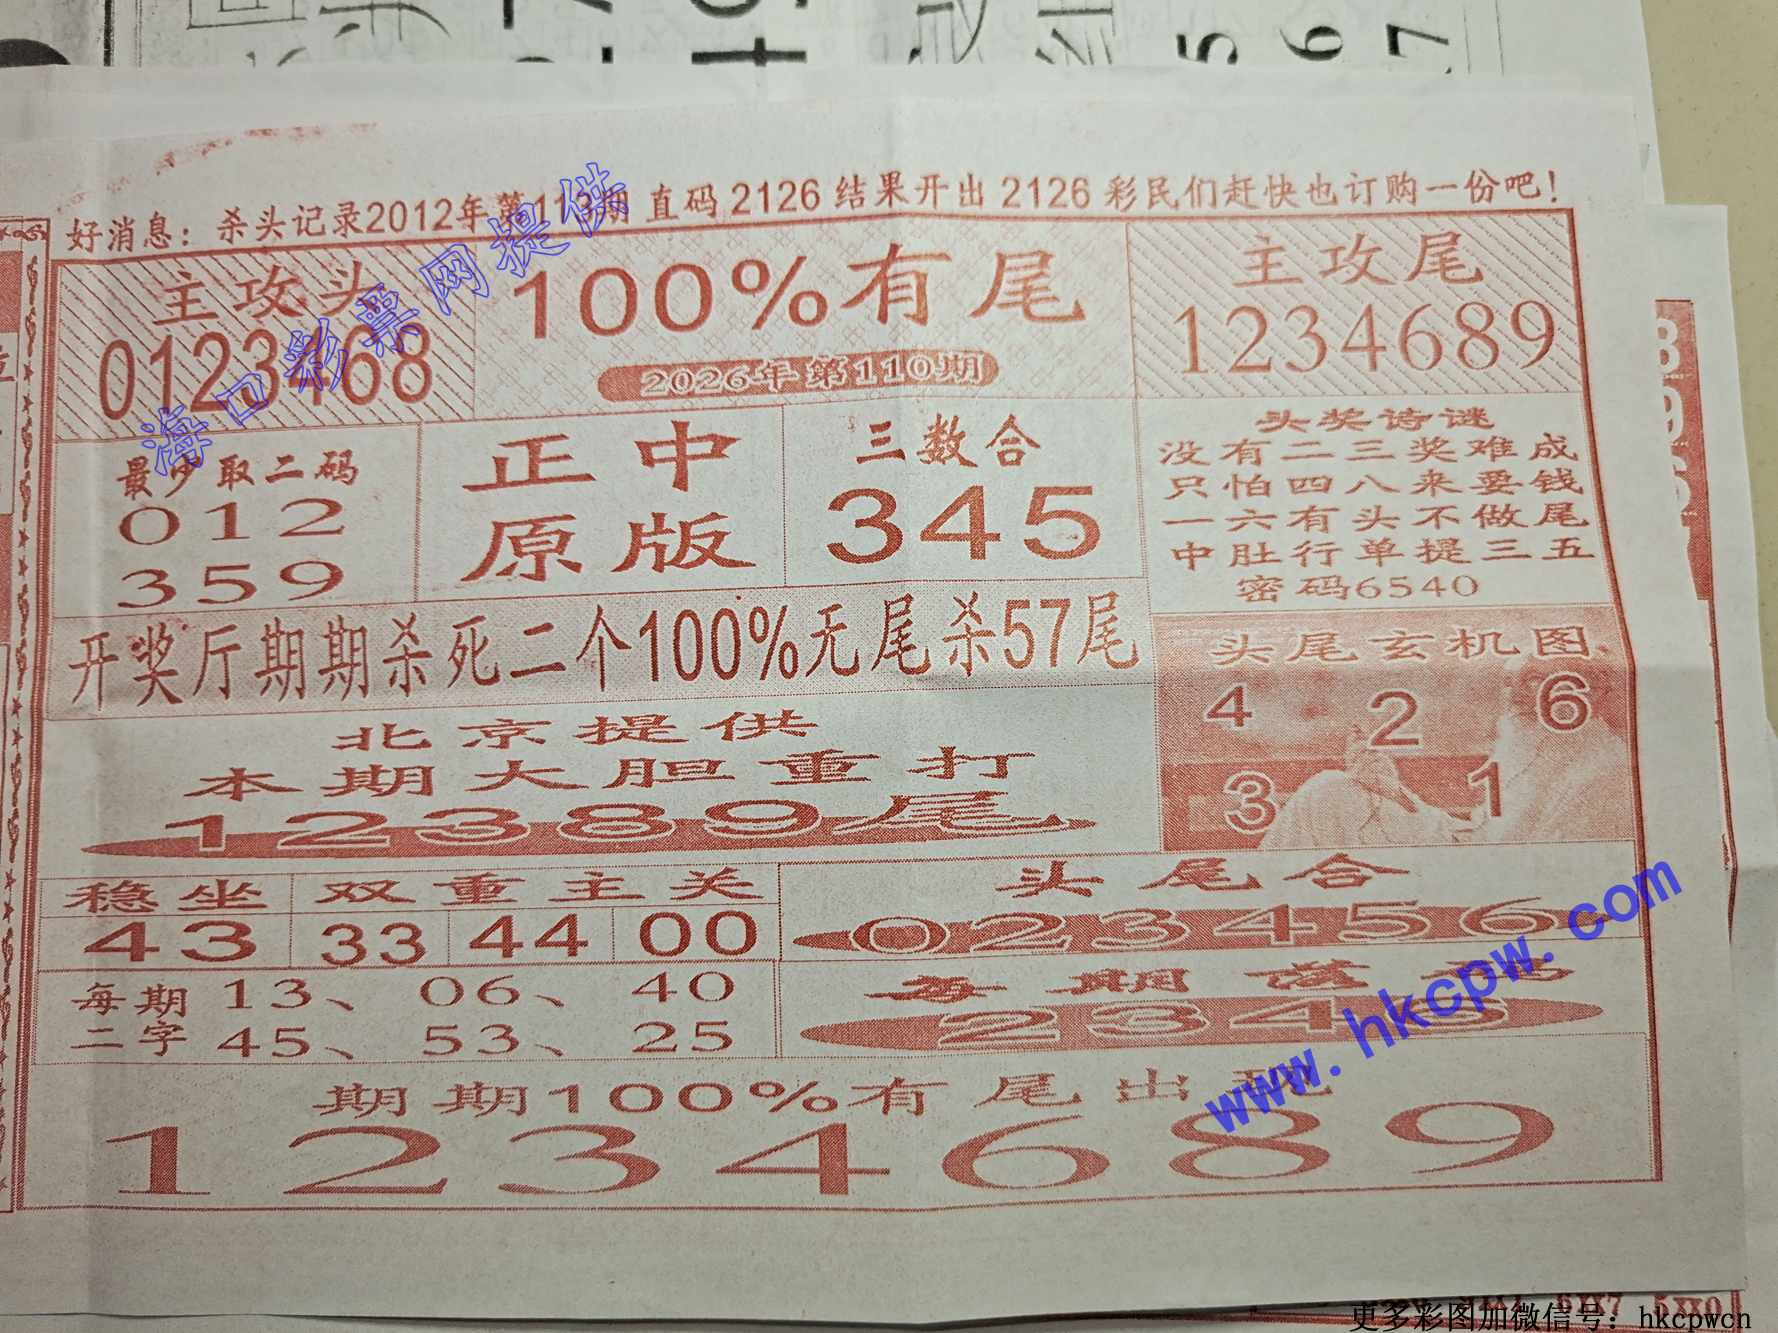 好消息：杀头记录2012年第113期 直码 2126 结果开出 2126 彩民们赶快也订购一份吧！
主攻头
0123468
100%有尾
2026年第110期
主攻尾
1234689
最少取二码
012
359
正中
原版
三数合
345
头奖诗谜
没有二三奖难成
只怕四八来要钱
一六有头不做尾
中肚行单提三五
密码6540
开奖厅期期杀死二个100%无尾杀57尾
头尾玄机图
4 2 6
3 1
北京提供
本期大胆重打
12389尾
稳坐
43
双重主关
33 44 00
头尾合
023456
每期二字
13、 06、 40
45、 53、 25
每期落
2345
期期100%有尾出
1234689
海口彩票网提供
www.hkcpw.com
5 6 7
更多彩图加微信号：hkcpwcn